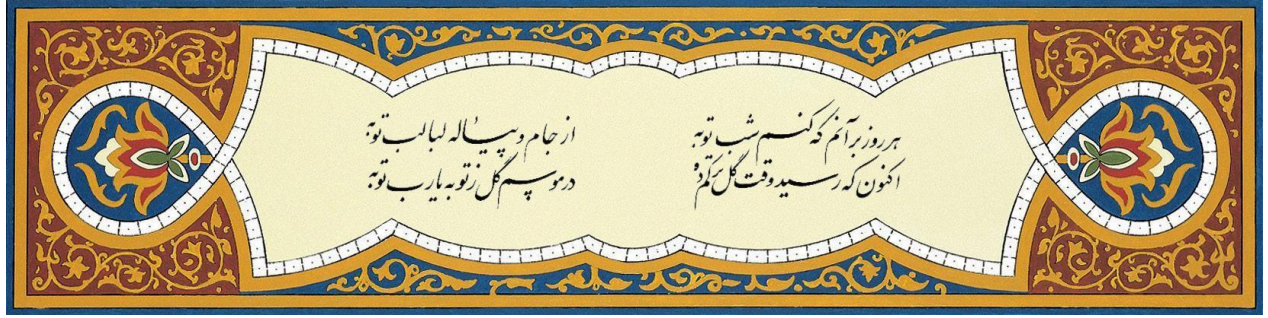 هر روز بر آنم که کنم شب توبه
از جام و پیاله لبالب توبه
اکنون که رسید وقت گل ترکم ده
در موسم گل ز توبه یارب توبه